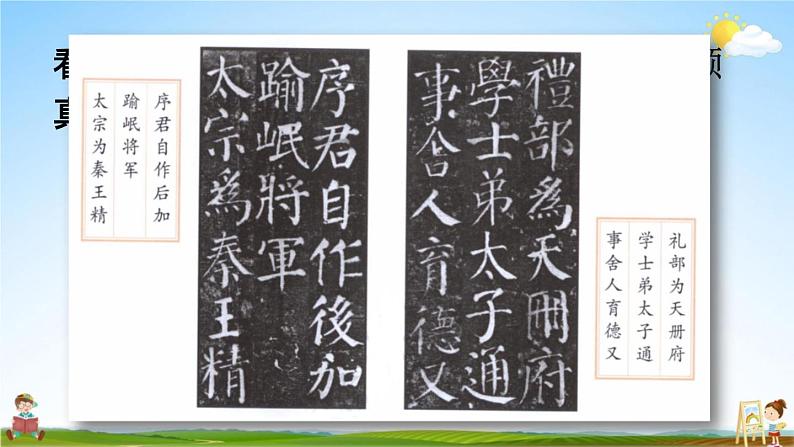 禮部爲天冊府
學士弟太子通
事舍人育德又
礼部为天册府
学士弟太子通
事舍人育德又
序君自作後加
踰岷將軍
太宗爲秦王精
序君自作后加
踰岷将军
太宗为秦王精